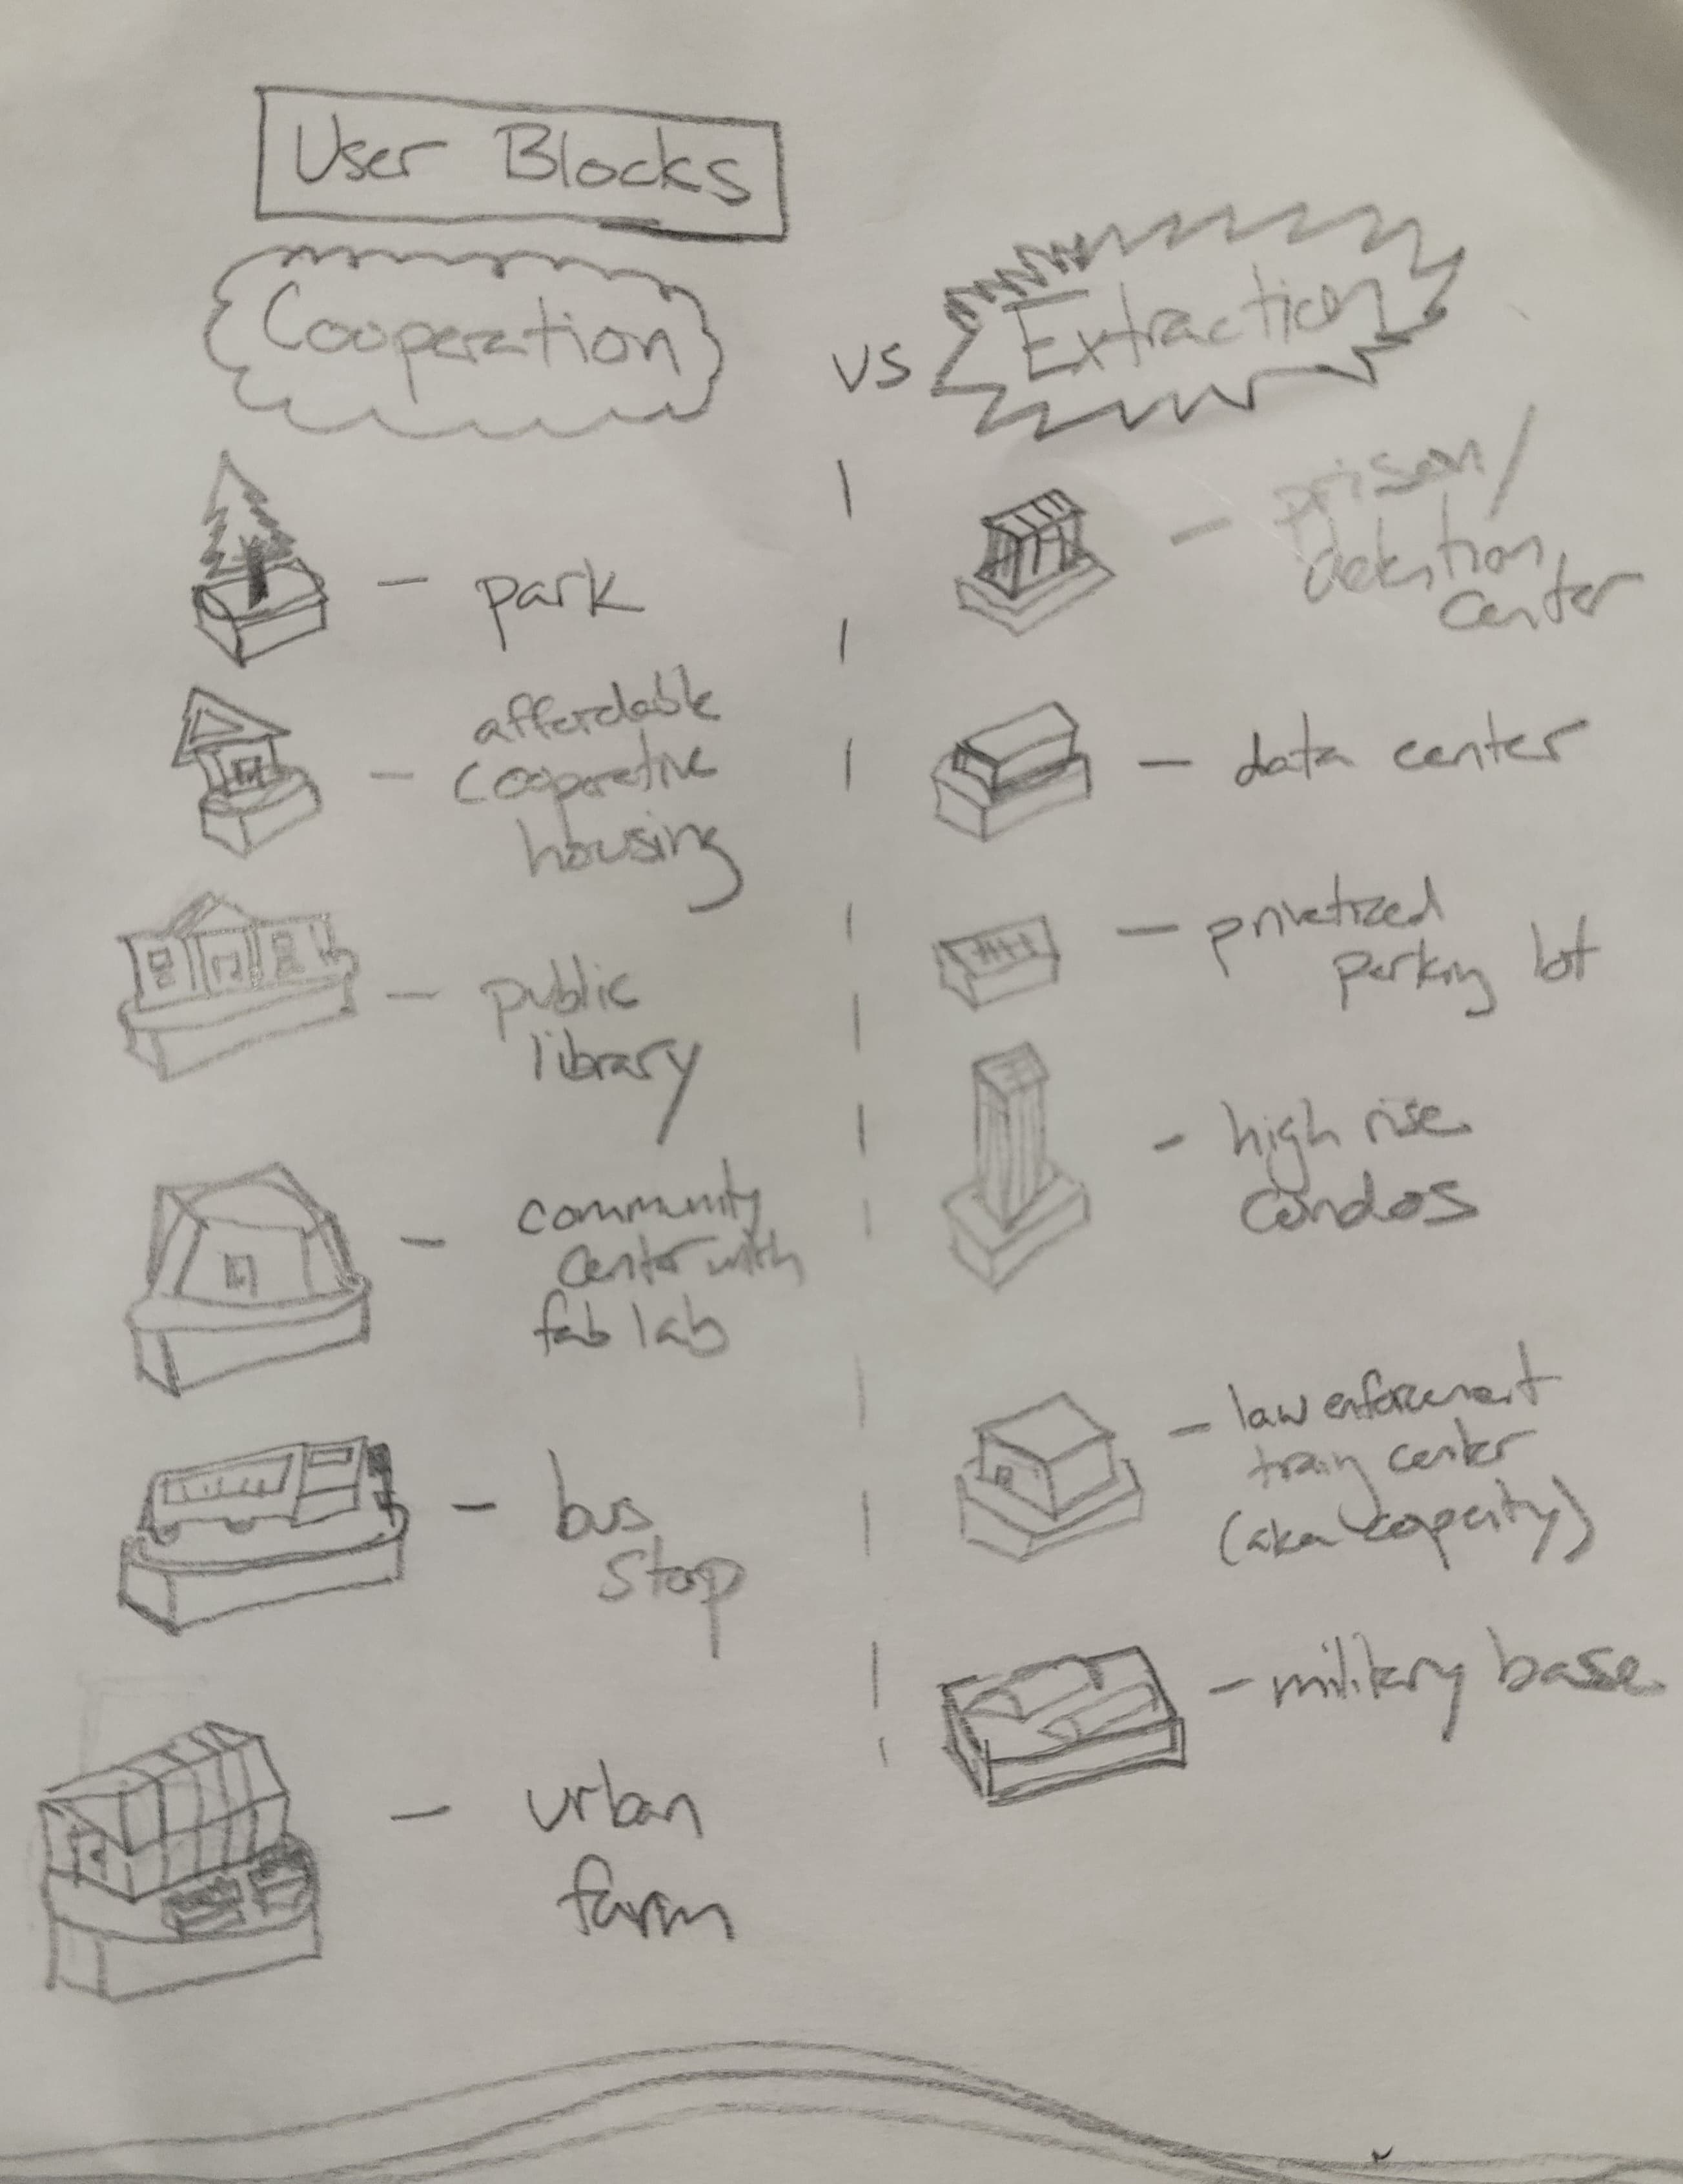 User Blocks
Cooperation
vs
Extraction
- park
affordable
- cooperative
housing
- public
library
community
- center with
fab lab
- bus
stop
- urban
farm
- prison/
detention
center
- data center
- privatized
parking lot
- high rise
condos
- law enforcement
center
(aka capacity)
- military base